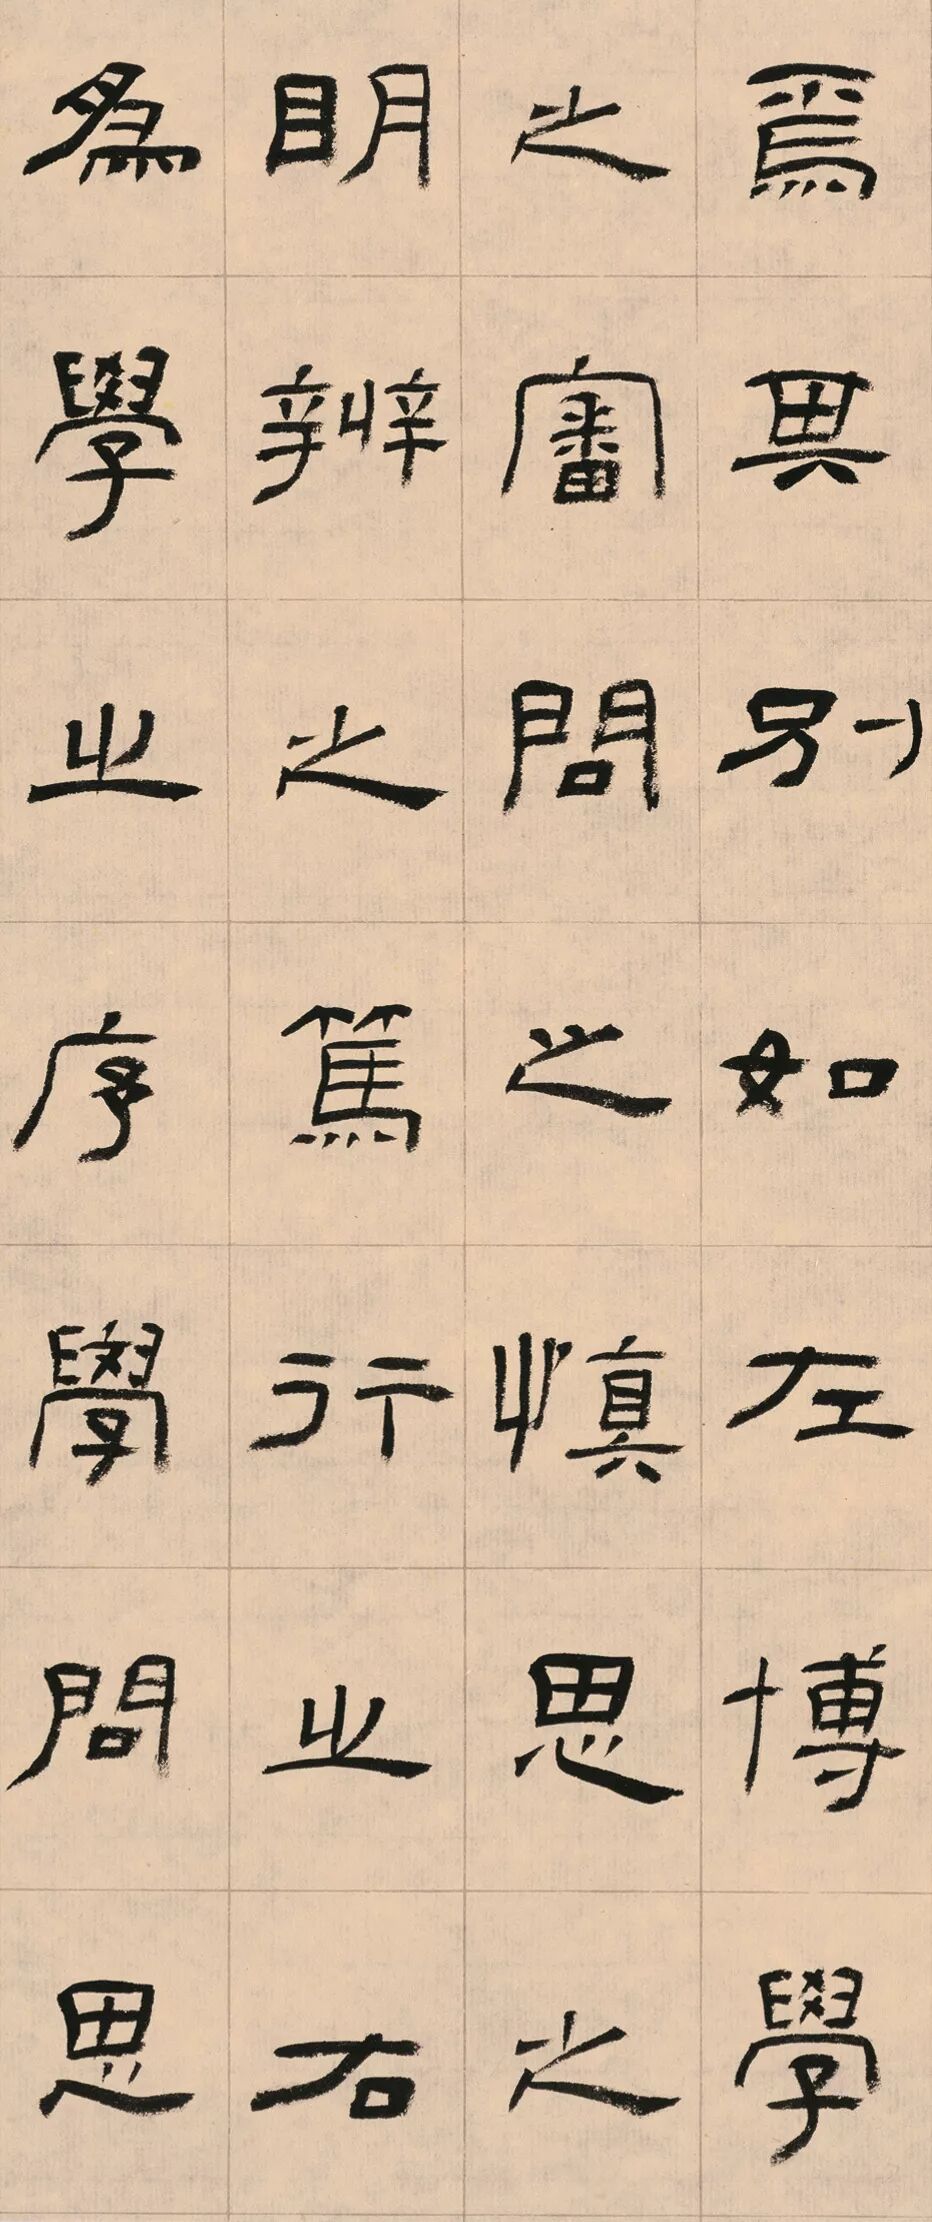 焉其別如左博學
之審問之慎思之
明辨之篤行之右
為學之序學問思